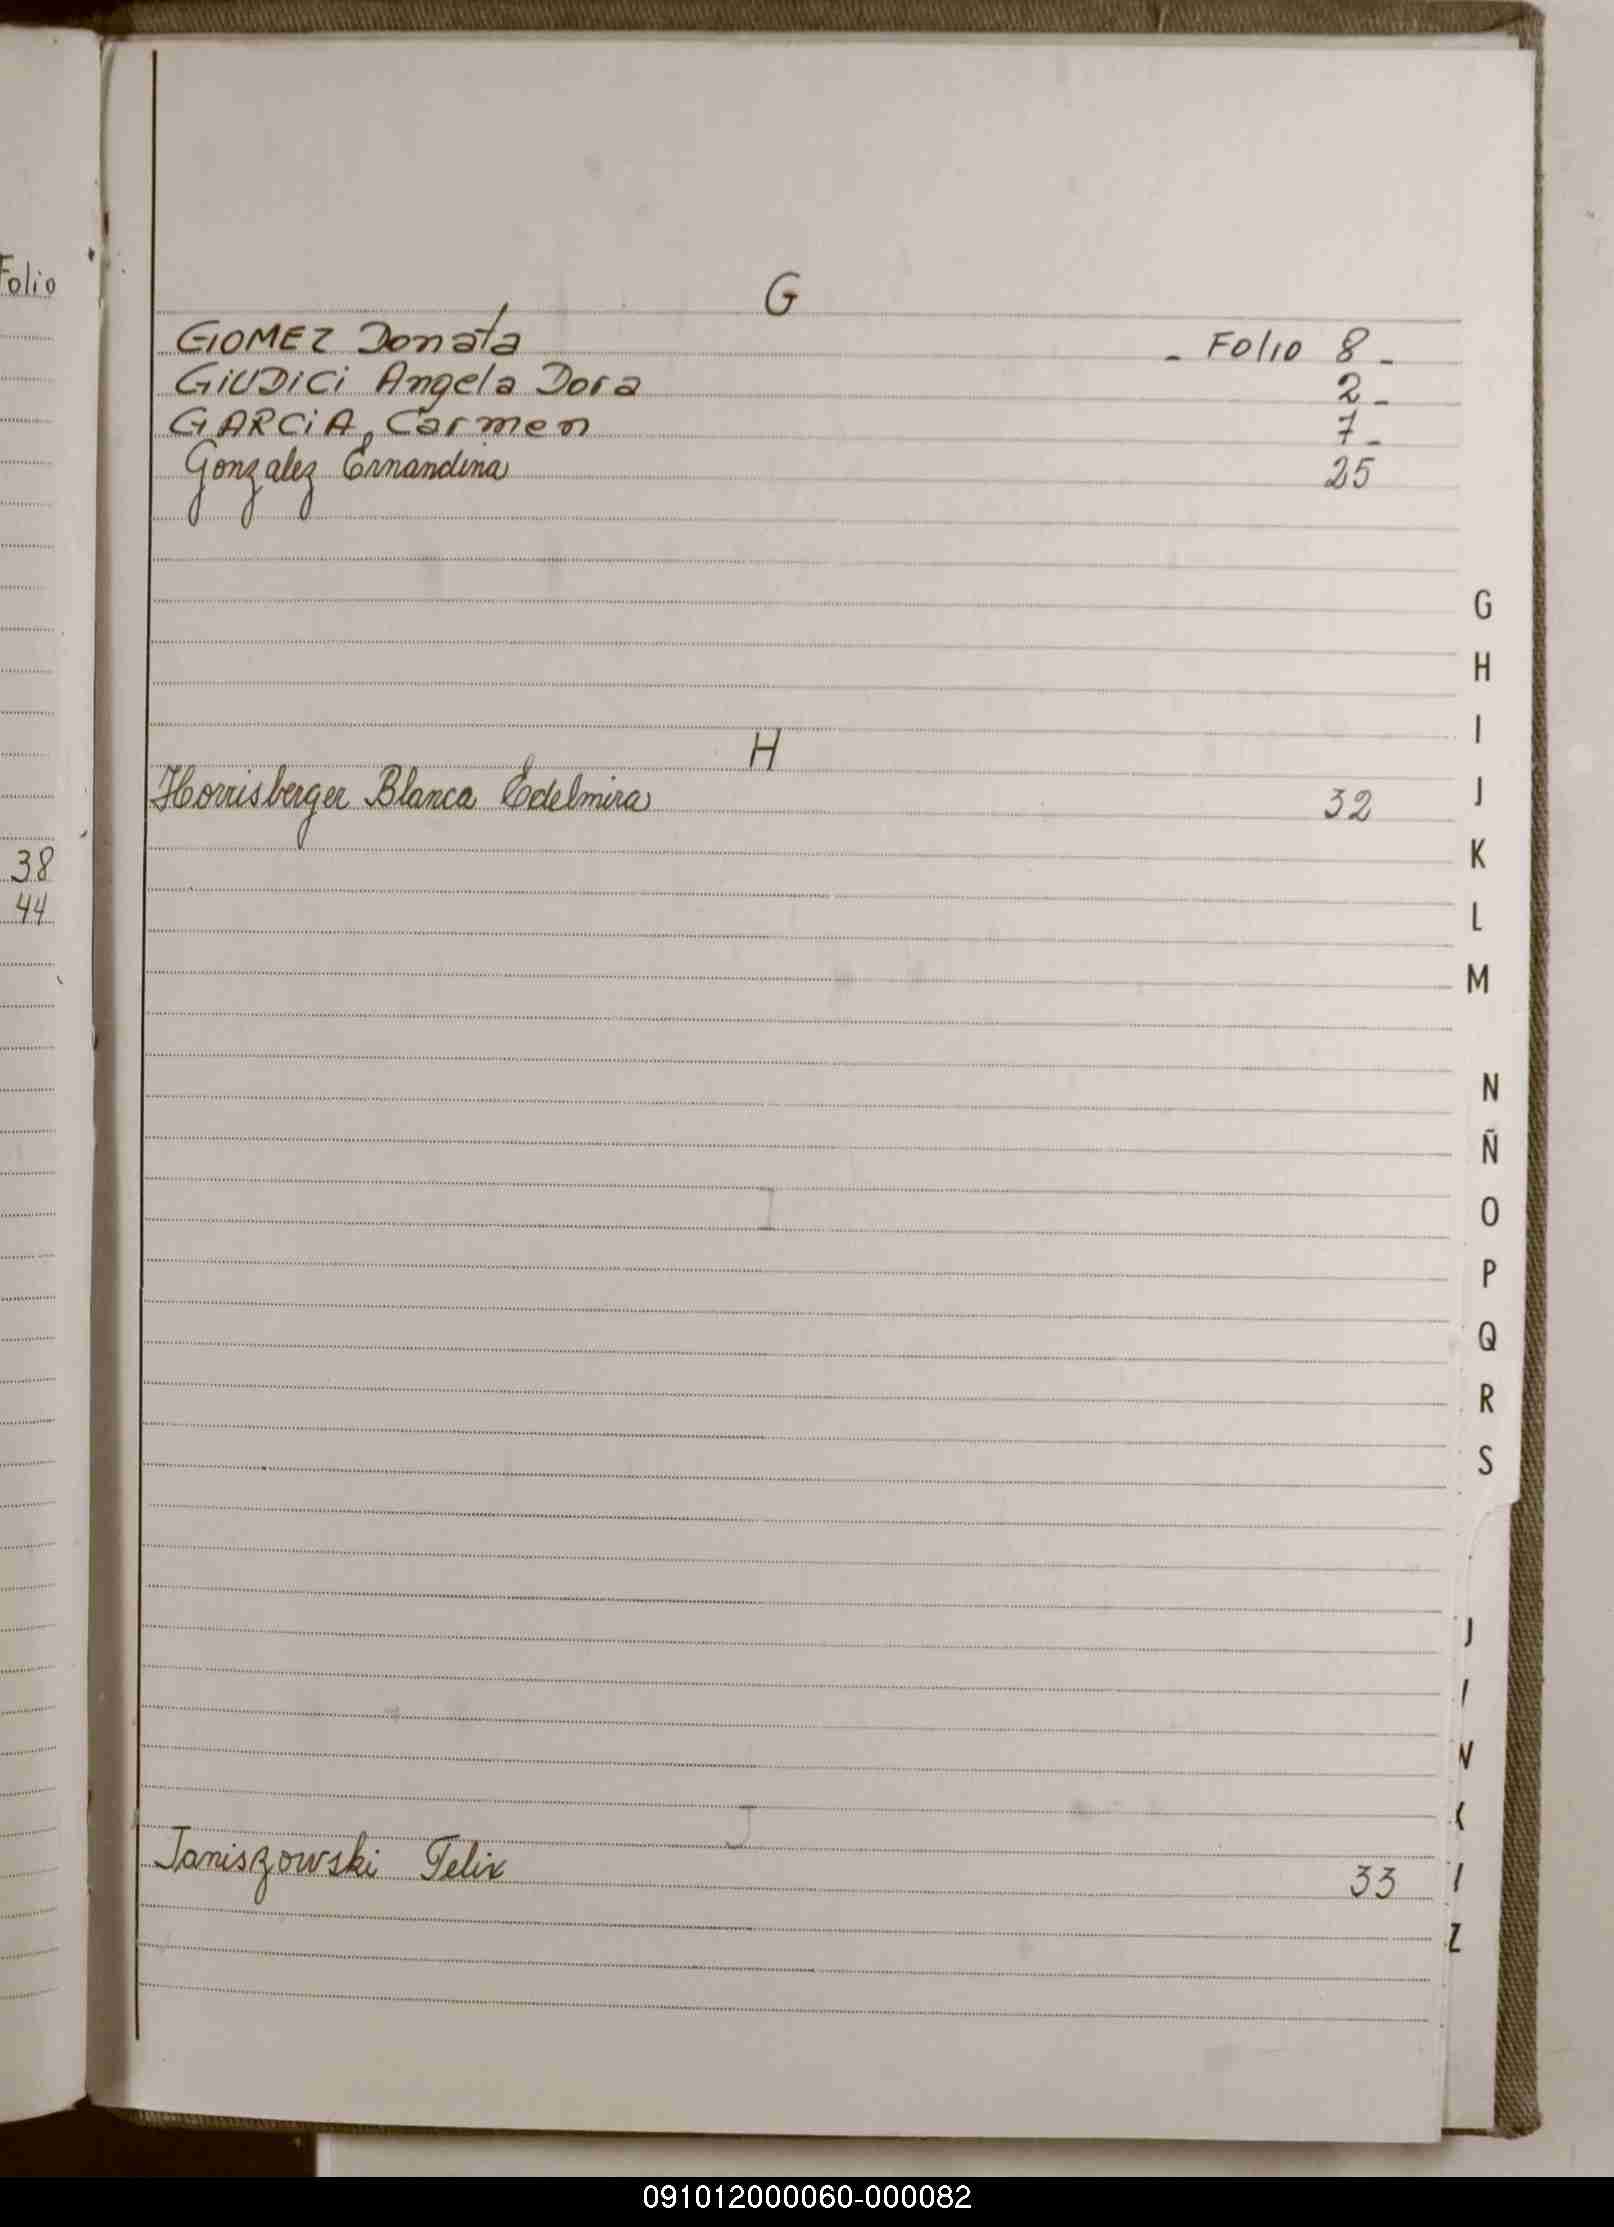 Folio
38
44
G
GOMEZ Donata - Folio 8 -
GIUDICI Angela Dora 2 -
GARCIA, Carmen 7 -
Gonzalez Ernandina 25
H
Horrisberger Blanca Edelmira 32
I
J
Janiszowski Felix 33
G
H
I
J
K
L
M
N
Ñ
O
P
Q
R
S
J
Z
091012000060-000082